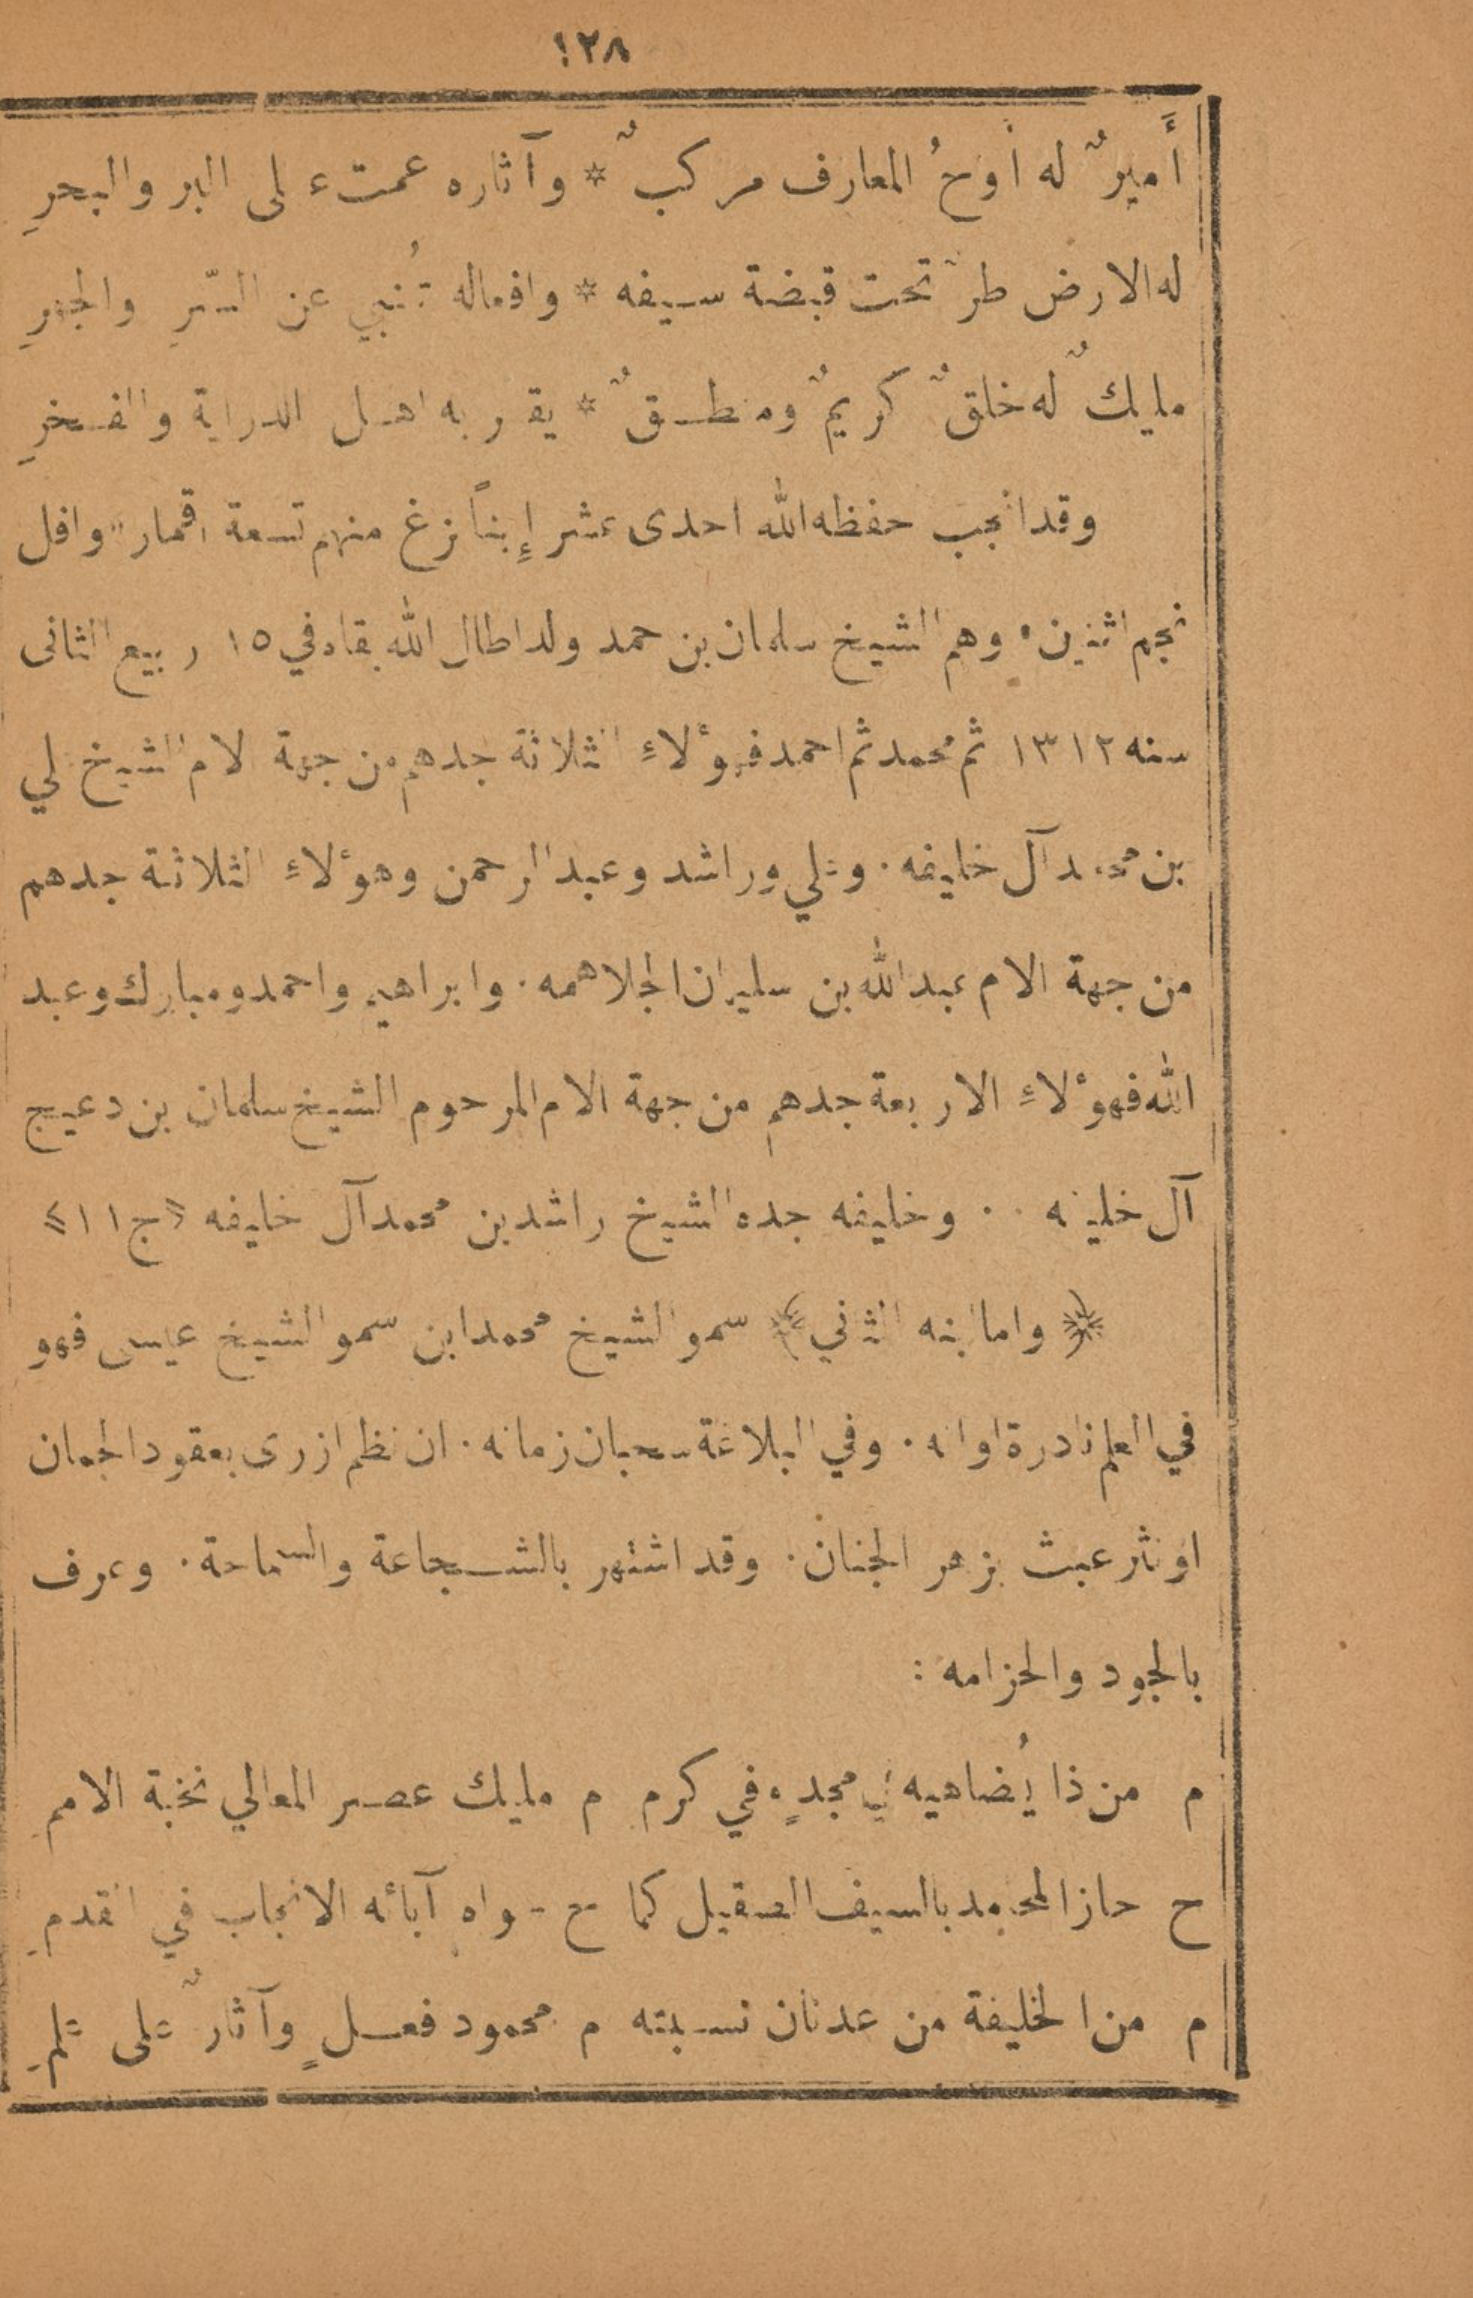 ١٢٨
أَميرٌ له أوجُ المعارف مركبٌ * وآثاره عمت على البر والبحرِ
له الارض طرّ تحت قبضة سيفه * وافعاله تُنبي عن السّرِ والجهرِ
مليكٌ له خلقٌ كريمٌ ومنطقٌ * يقر به اهل الدراية والفخرِ
وقد انجب حفظه الله احدى عشر إبناً بزغ منهم تسعة اقمار وافل
نجم اثنين وهم الشيخ سلمان بن حمد ولد اطال الله بقاه في ١٥ ربيع الثانى
سنه ١٣١٢ ثم محمد ثم احمد فهؤلاءِ الثلاثة جدهم من جهة الام الشيخ علي
بن محمد آل خليفه . وعلي وراشد وعبد الرحمن وهؤلاءِ الثلاثة جدهم
من جهة الام عبد الله بن سليمان الجلاهمه . وابراهيم واحمد ومبارك وعبد
الله فهؤلاءِ الاربعة جدهم من جهة الام المرحوم الشيخ سلمان بن دعيج
آل خليفه . . وخليفه جده الشيخ راشد بن محمد آل خليفه «ج١١»
﴿ واما ابنه الثاني ﴾ سمو الشيخ محمد ابن سمو الشيخ عيسى فهو
في العلم نادرة اوانه . وفي البلاغة سحبان زمانه . ان نظم ازرى بعقود الجمان
او نثر عبث بزهر الجنان . وقد اشتهر بالشجاعة والسماحة . وعرف
بالجود والحزامه :
م من ذا يُضاهيه في مجدٍ وفي كرم م مليك عصر المعالي نخبة الاممِ
ح حاز المحامد بالسيف الصقيل كما ح حواه آبائه الانجاب في القدمِ
م من الخليفة من عدنان نسبته م محمود فعلٍ وآثارٌ على علمِ